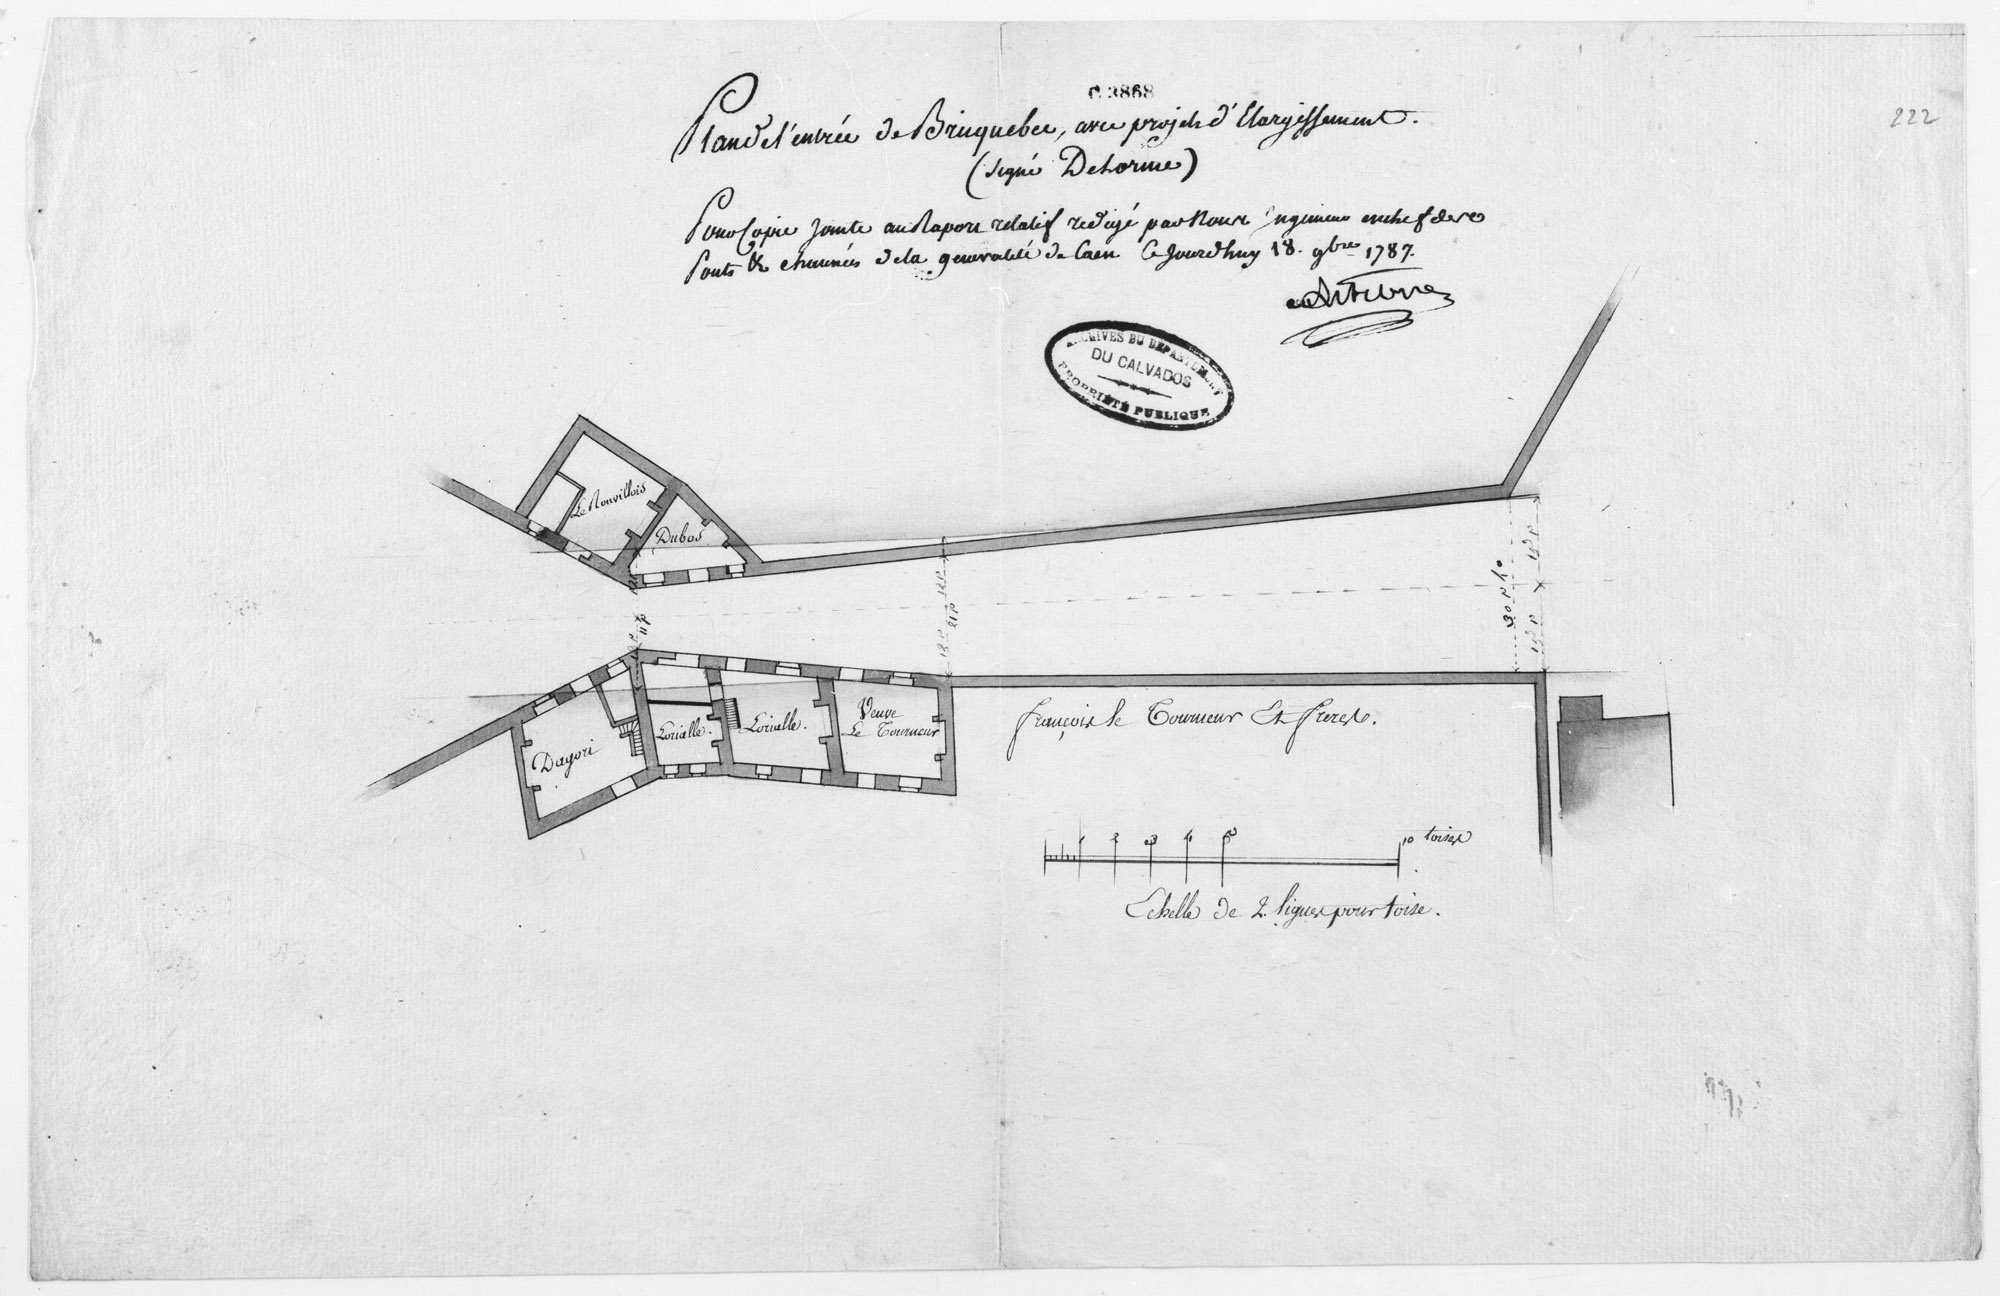 C 3868
222
Plan de l'entrée de Bruquebec, avec projet d'Elargissement.
(signé Delorme)
Pour Copie jointe au Raport relatif redigé par Nous Ingenieur en chef des
Ponts & chaussées de la generalité de Caen Ce Jourd'huy 18. 9bre 1787.
ARCHIVES DU DEPARTEMENT
DU CALVADOS
PROPRIÉTÉ PUBLIQUE
Le Nouvillois
Dubos
11 P
18 P
21 P
18 P
30 P
15 P
15 P
Dagori
Lorialle.
Lorialle.
Veuve
Le Tourneur
françois le Tourneur Et freres.
1 2 3 4 5 10 toises
Echelle de 2. lignes pour toise.